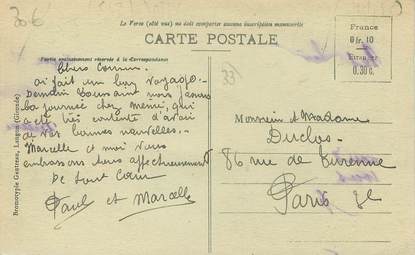 30€
Le Verso (côté vue) ne doit comporter aucune inscription manuscrite
CARTE POSTALE
Partie exclusivement réservée à la Correspondance
France
0 fr. 10
Étranger
0.30 c.
33
Chers Cousins
ai fait un bon voyage.-
Demain Toussaint nous
la journée chez mémé, qui
a été très contente d'avoir
de vos bonnes nouvelles.-
Marcelle et moi vous
embrassons tous affectueusement
De tout Cœur
Paul et Marcelle
Monsieur & Madame
Duclos
86 rue de Turenne
Paris 3e
Bromotypie Gautreau, Langon (Gironde)